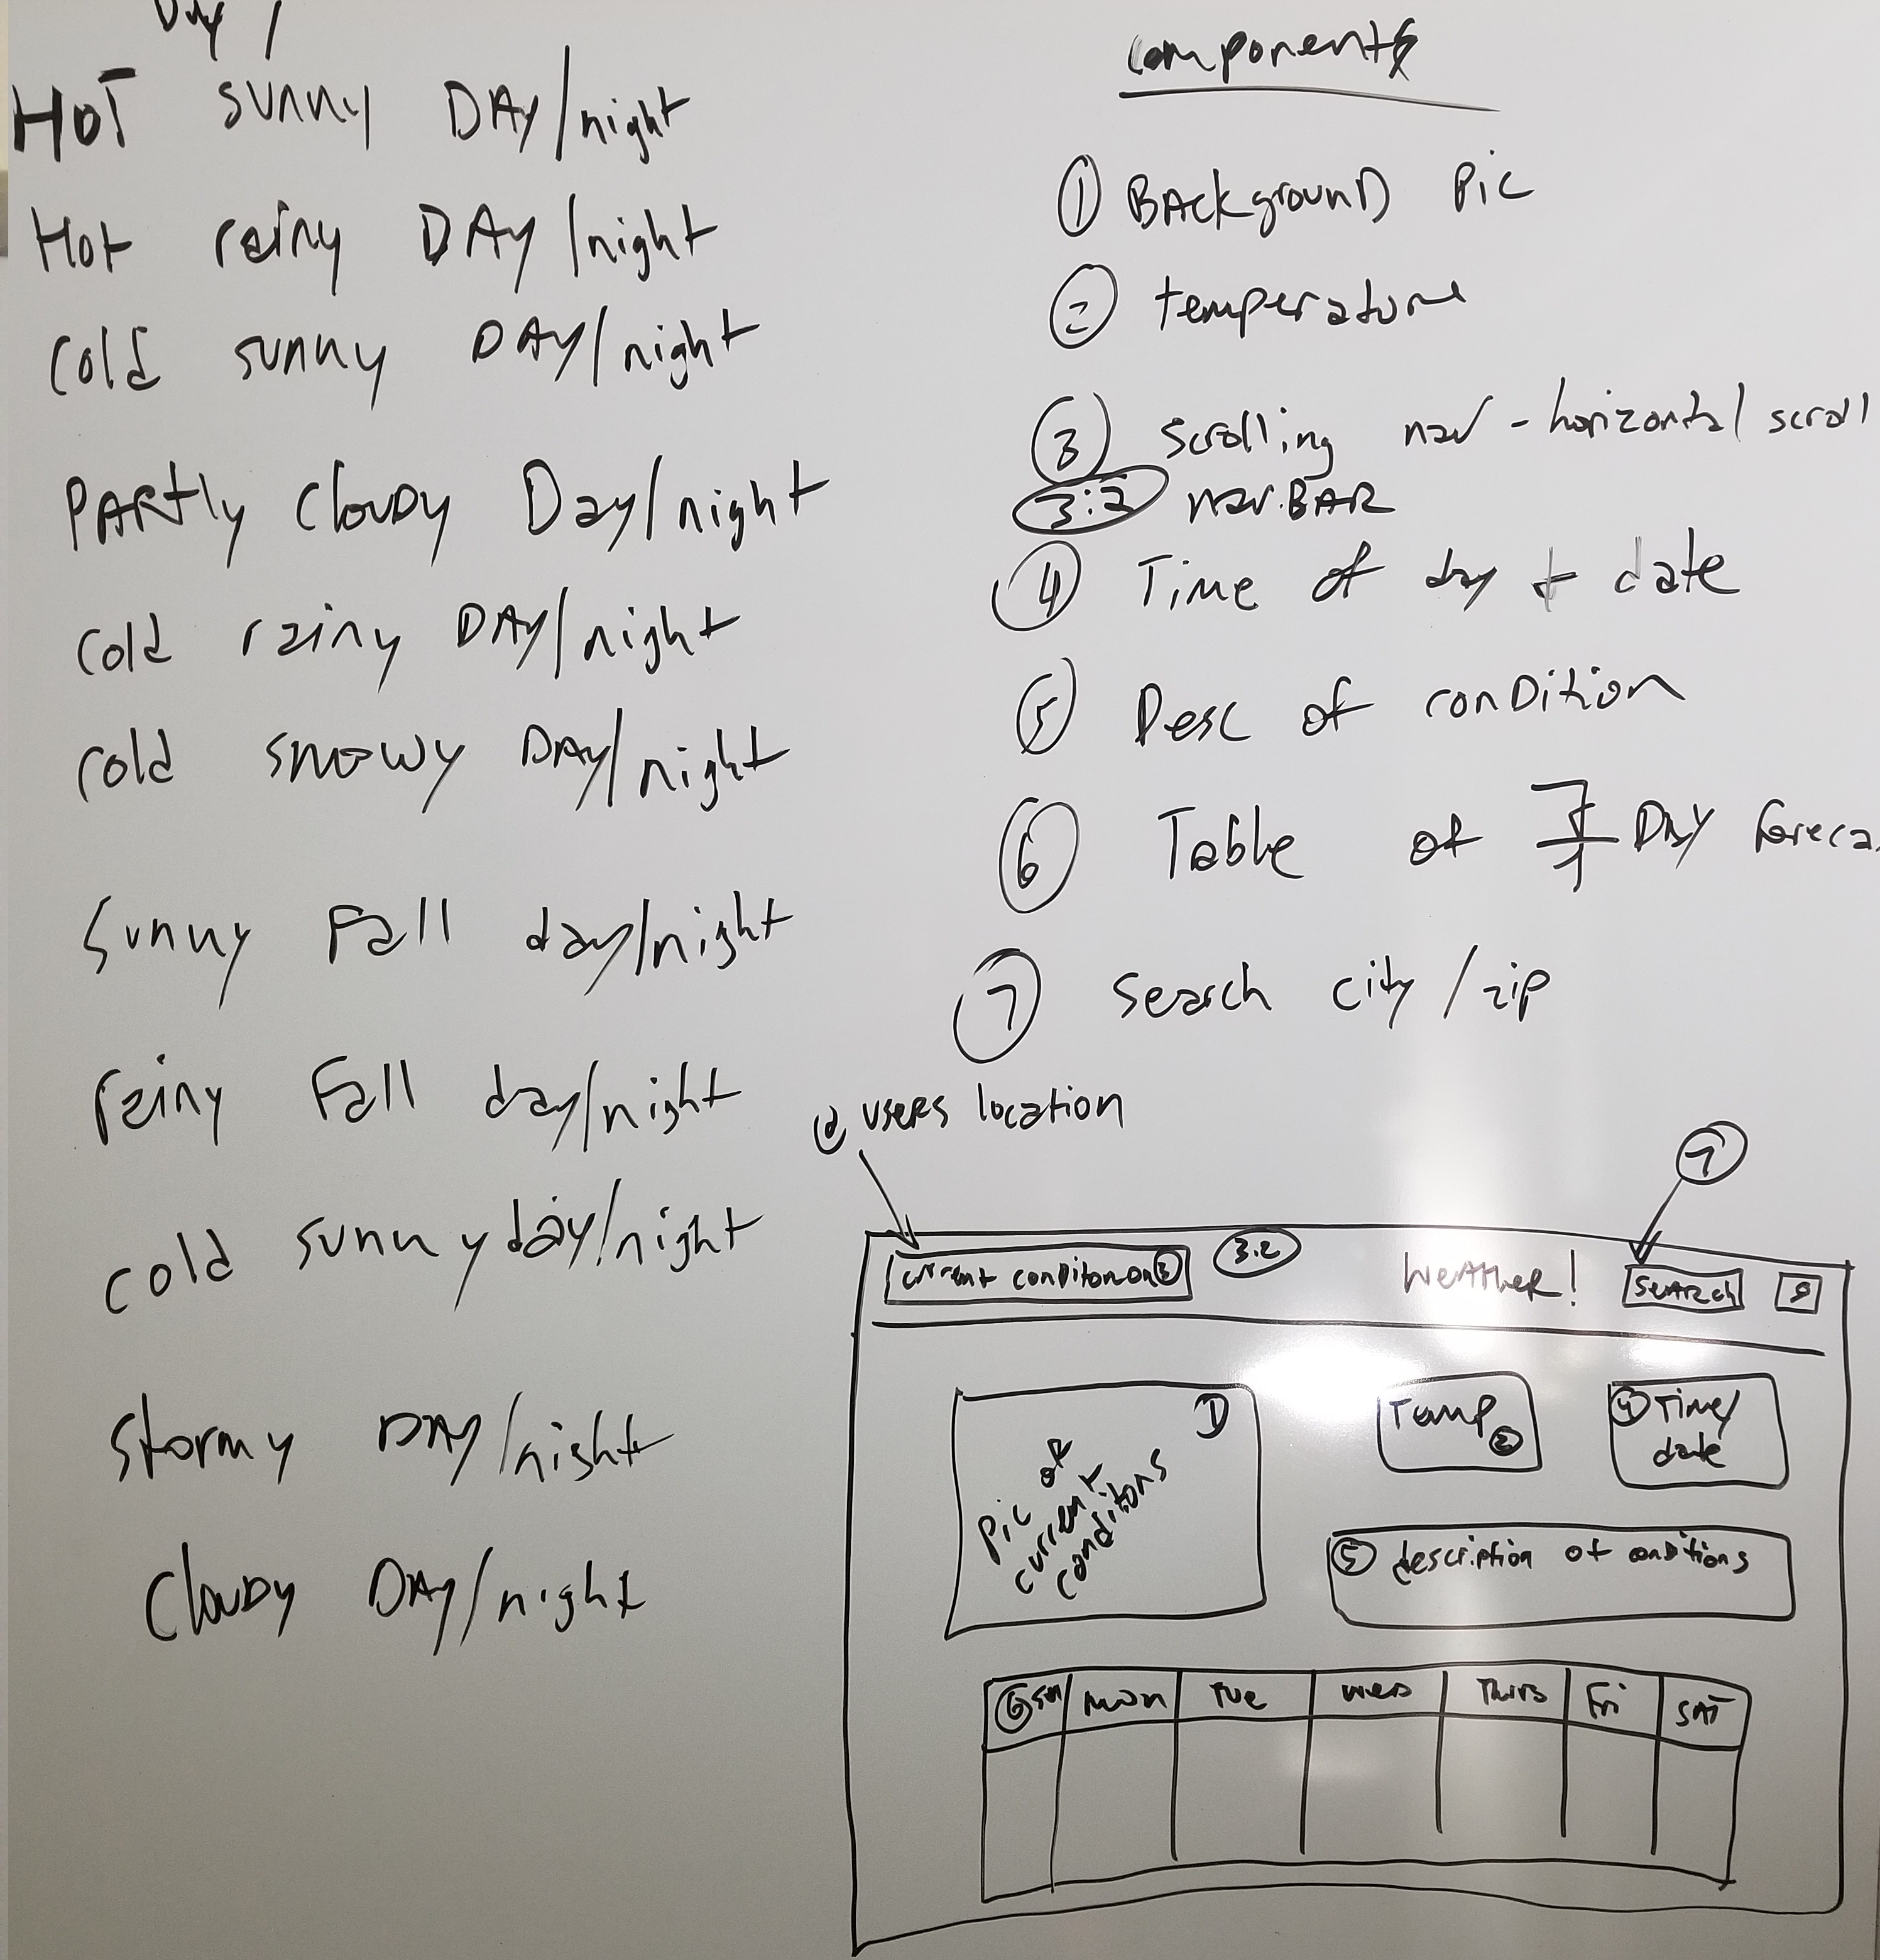 HOT sunny DAy/night
Hot rainy DAy/night
Cold sunny DAy/night
PARtly Cloudy Day/night
Cold rainy DAy/night
Cold snowy DAy/night
Sunny Fall day/night
rainy Fall day/night
Cold sunny day/night
Stormy DAy/night
Cloudy DAy/night
Components
1 BAckground Pic
2 temperature
3 Scrolling nav - horizontal scroll
3.2 nav.BAR
4 Time of day + date
5 Desc of condition
6 Table of 7 DAy foreca
7 Search city/zip
@ users location
7
current conditonon 3
3.2
WEATHER!
SEARCH
1
Pic of current conditons
Temp 2
4 Time/
date
5 description of conditions
6 Sun Mon Tue Weds Thurs Fri SAT